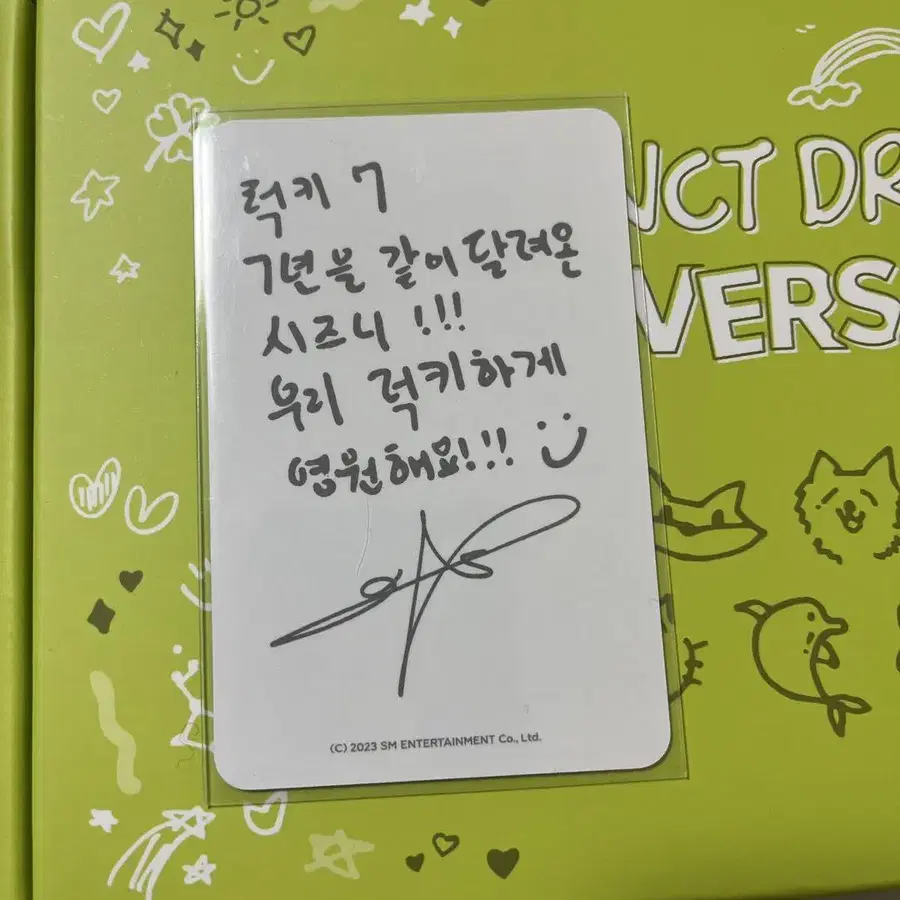 럭키 7
7년을 같이 달려온
시즈니 !!!
우리 럭키하게
영원해요!!!
(C) 2023 SM ENTERTAINMENT Co., Ltd.
NCT DR
VERS